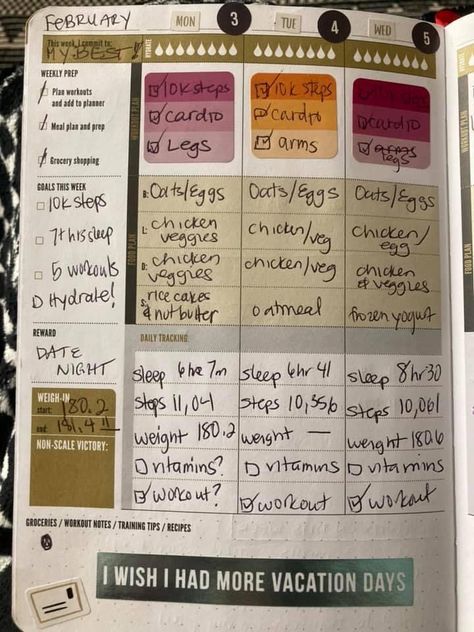 FEBRUARY
MON 3 TUE 4 WED 5
This week, I commit to:
MY BEST!!
HYDRATE
WEEKLY PREP
Plan workouts
and add to planner
Meal plan and prep
Grocery shopping
WORKOUT PLAN
10K steps
cardio
Legs
10K steps
cardio
arms
10K steps
cardio
arms
legs
GOALS THIS WEEK
10K steps
7+ hr sleep
5 workouts
Hydrate!
FOOD PLAN
B: Oats/Eggs Oats/Eggs Oats/Eggs
L: chicken
veggies
chicken/veg
chicken/
egg
D: chicken
veggies
chicken/veg
chicken
& veggies
S: rice cakes
& nut butter
oatmeal
frozen yogurt
REWARD
DATE
NIGHT
DAILY TRACKING
sleep 6hr 7m sleep 6hr 41 sleep 8hr30
steps 11,04 steps 10,356 steps 10,061
weight 180.2 weight — weight 180.6
vitamins? vitamins vitamins
workout? workout workout
WEIGH-IN
start: 180.2
end: 181.4
NON-SCALE VICTORY:
GROCERIES / WORKOUT NOTES / TRAINING TIPS / RECIPES
I WISH I HAD MORE VACATION DAYS
FOOD PLAN